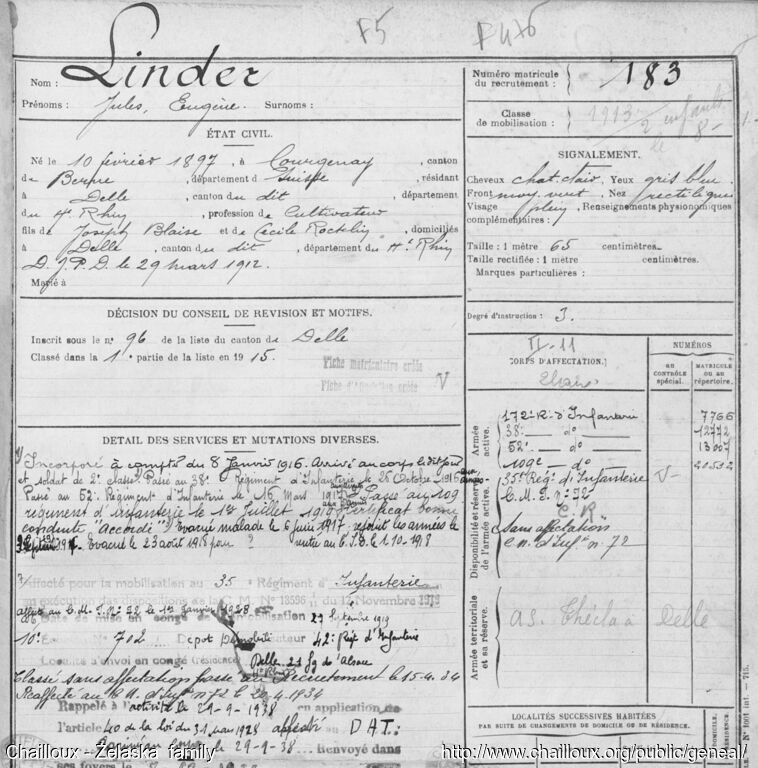 F5
Nom : Linder
Prénoms : Jules, Eugène. Surnoms :
ÉTAT CIVIL.
Né le 10 février 1897, à Courgenay, canton
de Berne, département d Suisse, résidant
à Delle, canton du dit, département
du Ht Rhin, profession de Cultivateur
fils de Joseph Blaise et de Cécile, domiciliés
à Delle, canton du dit, département du Ht Rhin
D. J. P. D. le 29 mars 1912.
Marié à
DÉCISION DU CONSEIL DE REVISION ET MOTIFS.
Inscrit sous le n° 96 de la liste du canton de Delle
Classé dans la 1e partie de la liste en 1915.
Fiche matriculaire créée
Fiche d'Affectation créée V
DÉTAIL DES SERVICES ET MUTATIONS DIVERSES.
Incorporé à compter du 8 Janvier 1916. Arrivé au corps le dit jour
et soldat de 2e classe. Passé au 38e Régiment d'Infanterie le 26 Octobre 1916
Passé au 52e Régiment d'Infanterie le 16 Mars 1917 Passé au 109
régiment d'infanterie le 1er Juillet 1919 Certificat bonne
conduite "Accordé" Evacué malade le 6 juin 1917 rejoint les armées le
Evacué le 23 août 1918 pour ? rentré au 1.10.1918
Affecté pour la mobilisation au 35e Régiment d'Infanterie
en exécution des dispositions de la C. M. N° 13596 12 Novembre 1919
affecté au C. M. I. N° 72 le 1er Janvier 1928
Date de mise en congé de démobilisation 29 Septembre 1919
10e 702 Dépôt Démobilisateur 42e Régt d'Infanterie
Localité d'envoi en congé (résidence) Delle 21 fg d'Alsace
Classé sans affectation passé au Recrutement le 15-4-34
Réaffecté au C. M. d'Infie n° 72 le 20-4-1934
Rappelé à l'activité le 29-9-1938 en application de
l'article 40 de la loi du 31 mars 1928 affecté D.A.T.
le 29-9-38. Renvoyé dans
ses foyers le
Numéro matricule
du recrutement : 183
Classe
de mobilisation : 1913
SIGNALEMENT.
Cheveux chat. clair, Yeux gris bleu
Front moy. vert, Nez rectiligne
Visage plein, Renseignements physionomiques
complémentaires :
Taille : 1 mètre 65 centimètres.
Taille rectifiée : 1 mètre centimètres.
Marques particulières :
Degré d'instruction : 3.
II-11
CORPS D'AFFECTATION.
NUMÉROS
AU CONTRÔLE spécial.
MATRICULE OU AU répertoire.
Armée active.
172e R. d'Infanterie 7766
38e — do 12772
52e — do 13007
109e do 20532
Disponibilité et réserve de l'armée active.
35e Régt d'Infanterie V
C. M. I. n° 72
Sans affectation
c. m. d'Infie n° 72
Armée territoriale et sa réserve.
Delle
LOCALITÉS SUCCESSIVES HABITÉES
PAR SUITE DE CHANGEMENTS DE DOMICILE OU DE RÉSIDENCE.
Chailloux - Zelaska family
http://www.chailloux.org/public/geneal/